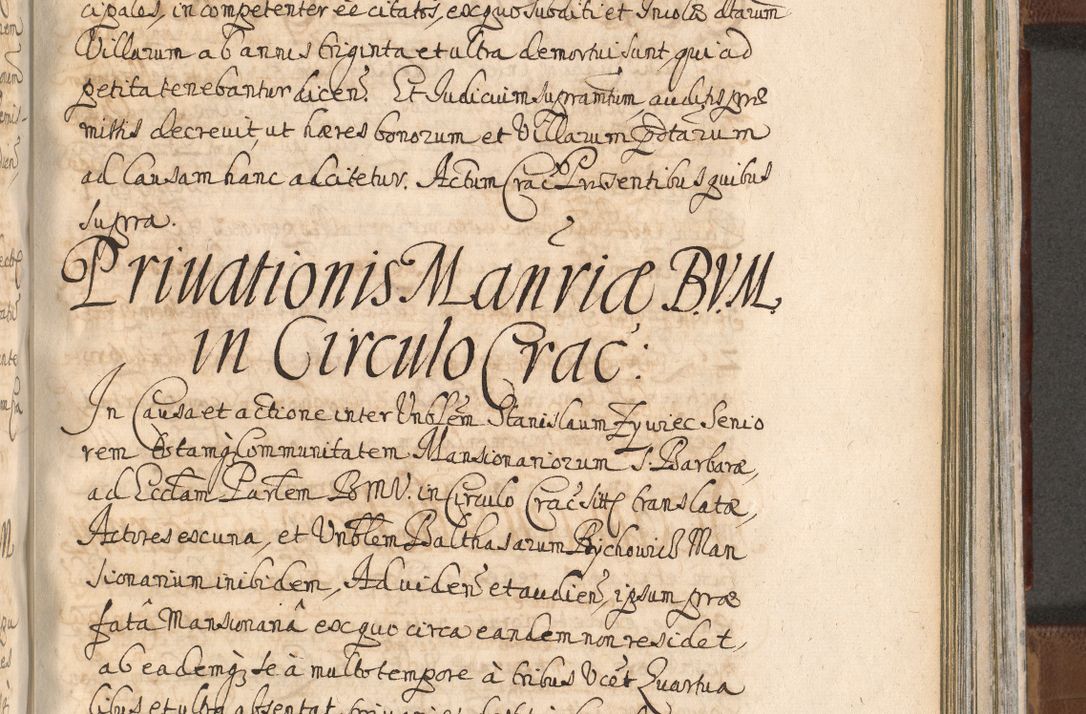 cipales, in competenter eē citatos, ex quo subditi et Incolæ dtarum
Villarum ab annis triginta et ultra demortui sunt, qui ad
petita tenebantur dicen̄. Et Iudicium supramtum, auditis præ
missis decrevit, ut hæres bonorum et Villarum pdtarum
ad Causam hanc adcitetur. Actum Crac̄ Præsentibus quibus
supra.
Privationis Manriæ B.V.M.
in Circulo Crac̄:
In Causa et actione inter Vnblem Stanislaum Zywiec Senio
rem totamq Communitatem Mansionariorum S. Barbaræ,
ad Ecclam Parlem B M V. in Circulo Crac̄ sitt translatæ,
Actores ex una, et Vnblem Balthasarum Rychowicz Man
sionarium inibidem, Ad viden̄ et audien̄, ipsum præ
fatâ Mansionariâ ex quo circa eandem non residet,
ab eademq se à multo tempore à tribus Vcēt Quartua
libus et ultra absentat,